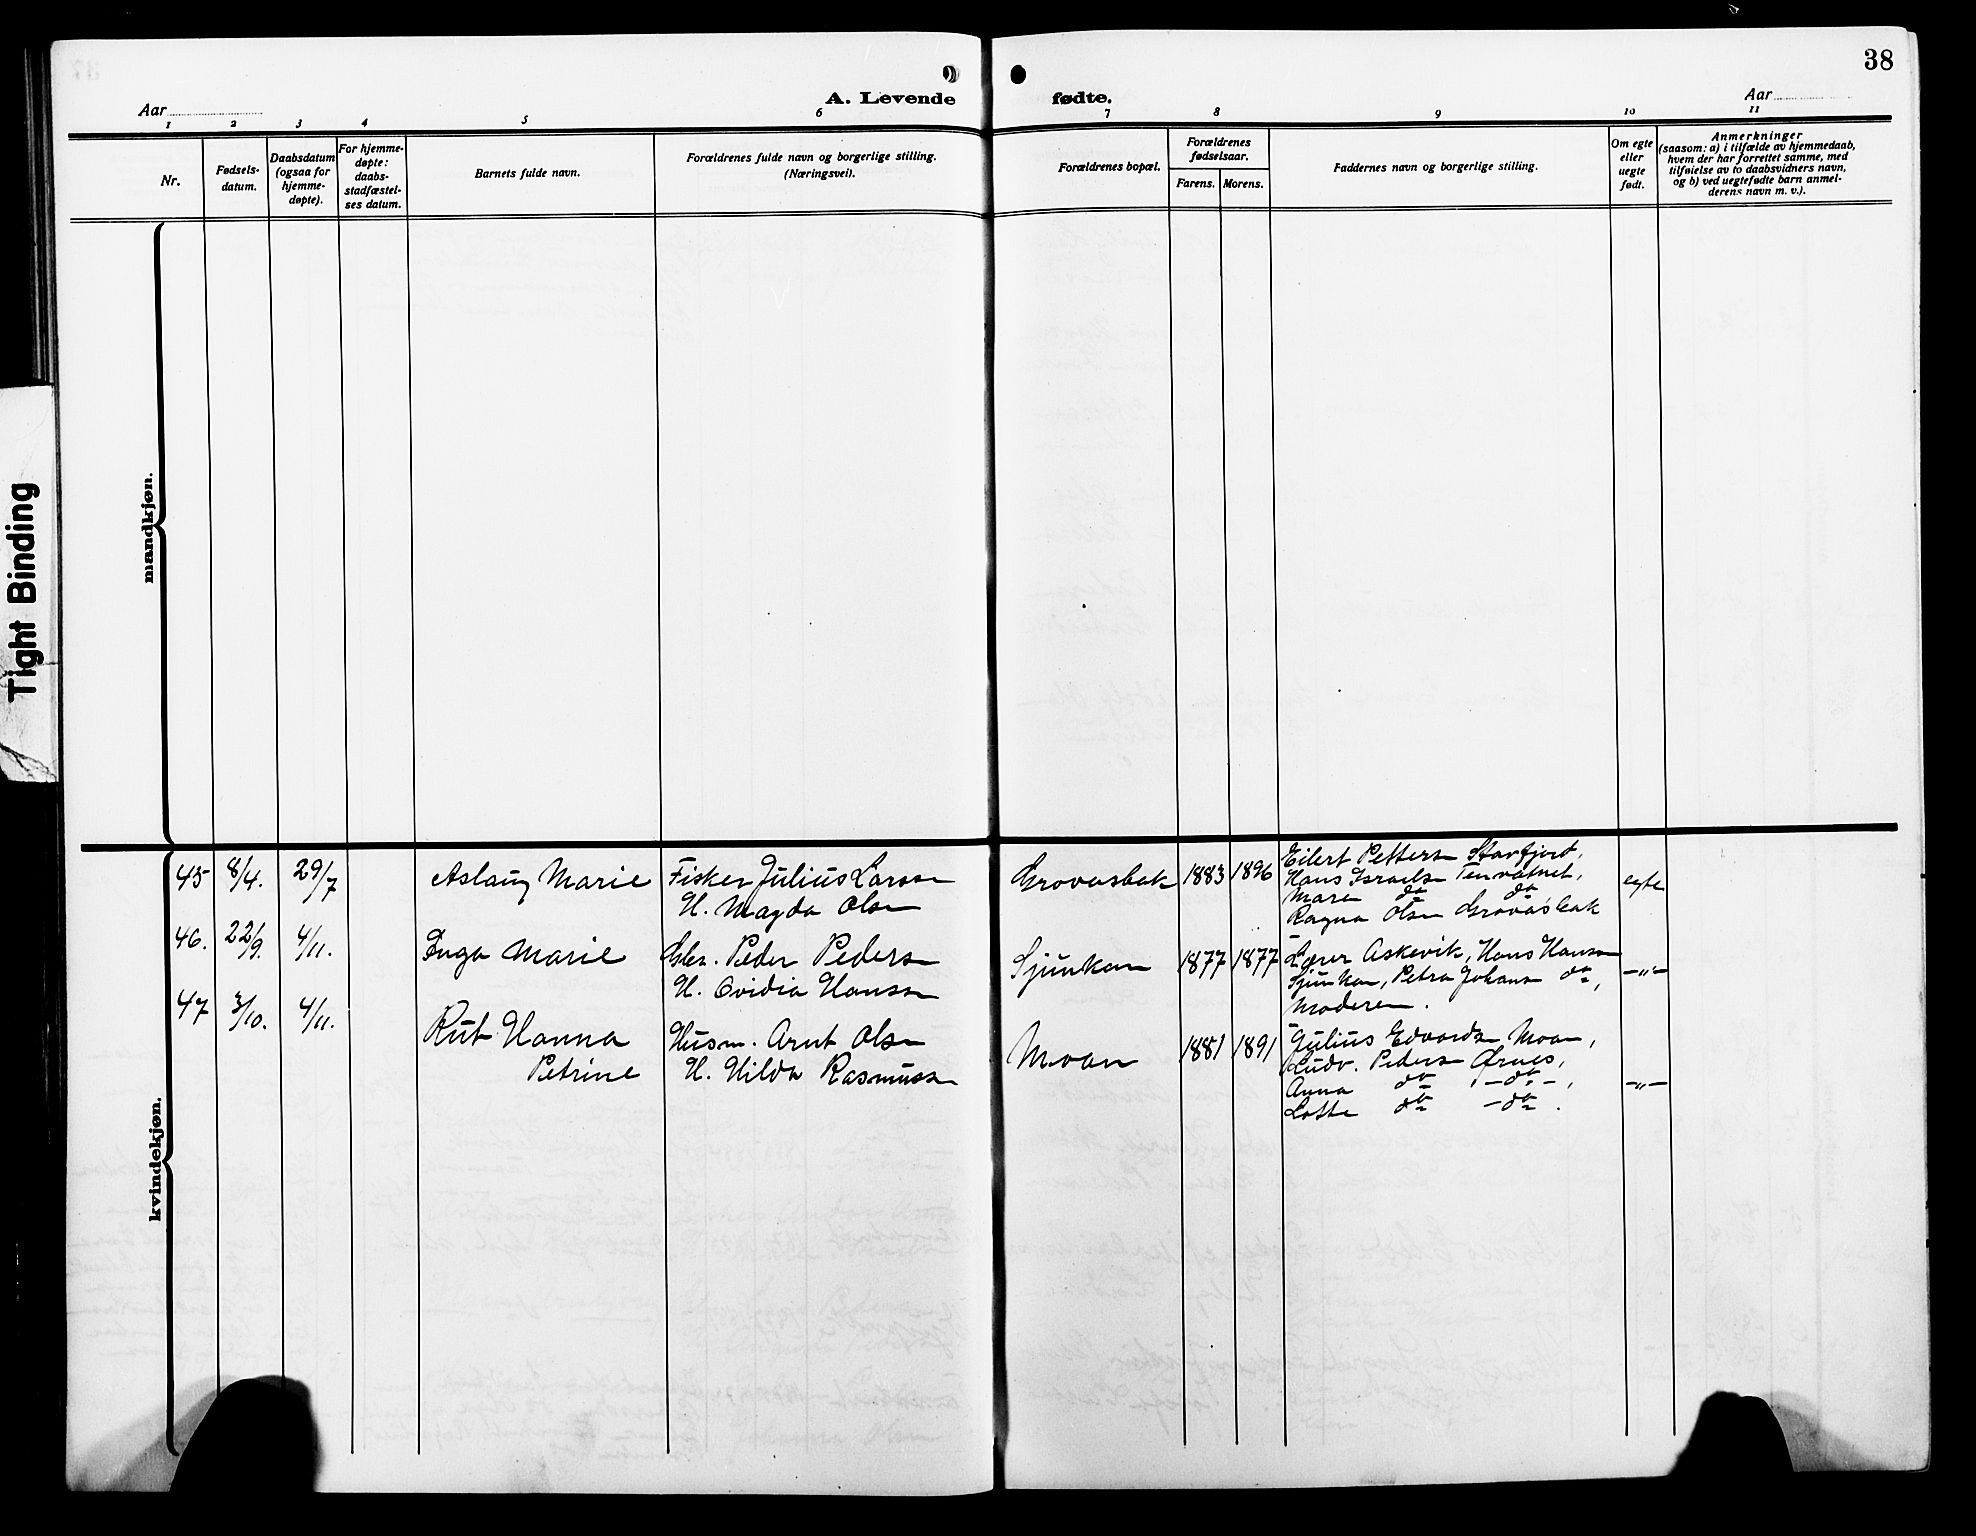 38
A. Levende fødte.
Aar
Aar
1 2 3 4 5 6 7 8 9 10 11
Nr.
Fødsels-
datum.
Daabsdatum
(ogsaa for
hjemme-
døpte).
For hjemme-
døpte:
daabs-
stadfæstel-
ses datum.
Barnets fulde navn.
Forældrenes fulde navn og borgerlige stilling.
(Næringsvei).
Forældrenes bopæl.
Forældrenes
fødselsaar.
Farens. Morens.
Faddernes navn og borgerlige stilling.
Om egte
eller
uegte
født.
Anmerkninger
(saasom: a) i tilfælde av hjemmedaab,
hvem der har forrettet samme, med
tilføielse av to daabsvidners navn,
og b) ved uegtefødte barn anmel-
derens navn m. v.).
mandkjøn.
Tight Binding
kvindekjøn.
45 8/4. 29/7 Aslaug Marie Fisker Julius Larsen
H. Magda Olsen
Grovasbak 1883 1896
Eilert Petters
Hans Israels Tenvatnet,
Maren do do
Ragna Olsen Grovasbak
egte
46. 22/9. 4/11. Inga Marie Gbr. Peder Peders
H. Ovidia Hansen
Sjunkan 1877 1877
Lærer Askevik, Hans Hansen
Sjunkan, Petra Johans do,
Moderen.
-"-
47 3/10. 4/11. Rut Hanna
Petrine
Husm. Arnt Olsen
H. Hilda Rasmuss
Moan 1881 1891
Julius Edvards Moan,
Ludv. Peders Ørnes,
Anna do -do-,
Lotte do -do.
-"-